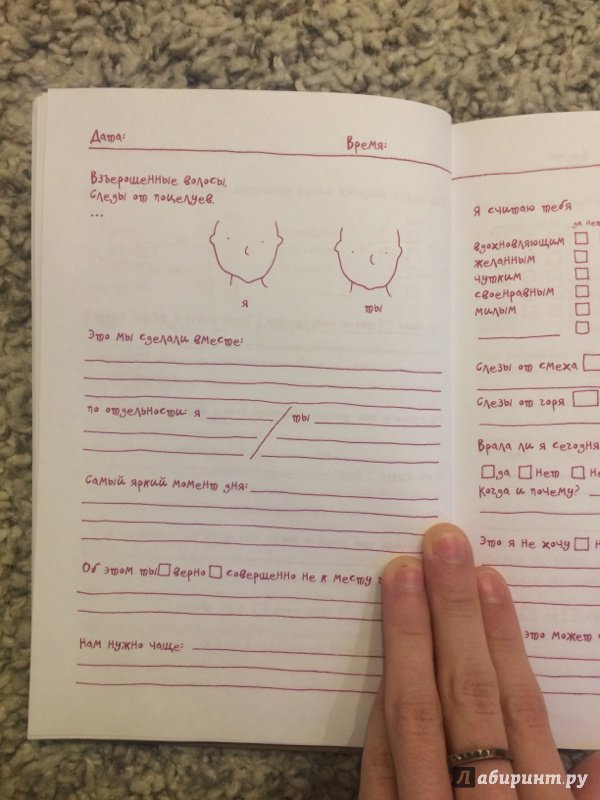 Дата: Время:
Взъерошенные волосы.
Следы от поцелуев.
...
я ты
Это мы сделали вместе:
по отдельности: я ты
Самый яркий момент дня:
Об этом ты верно совершенно не к месту
Нам нужно чаще:
Я считаю тебя
да нет
вдохновляющим
желанным
чутким
своенравным
милым
Слезы от смеха
Слезы от горя
Врала ли я сегодня
да нет
Когда и почему?
Это я не хочу
это может
Лабиринт.ру